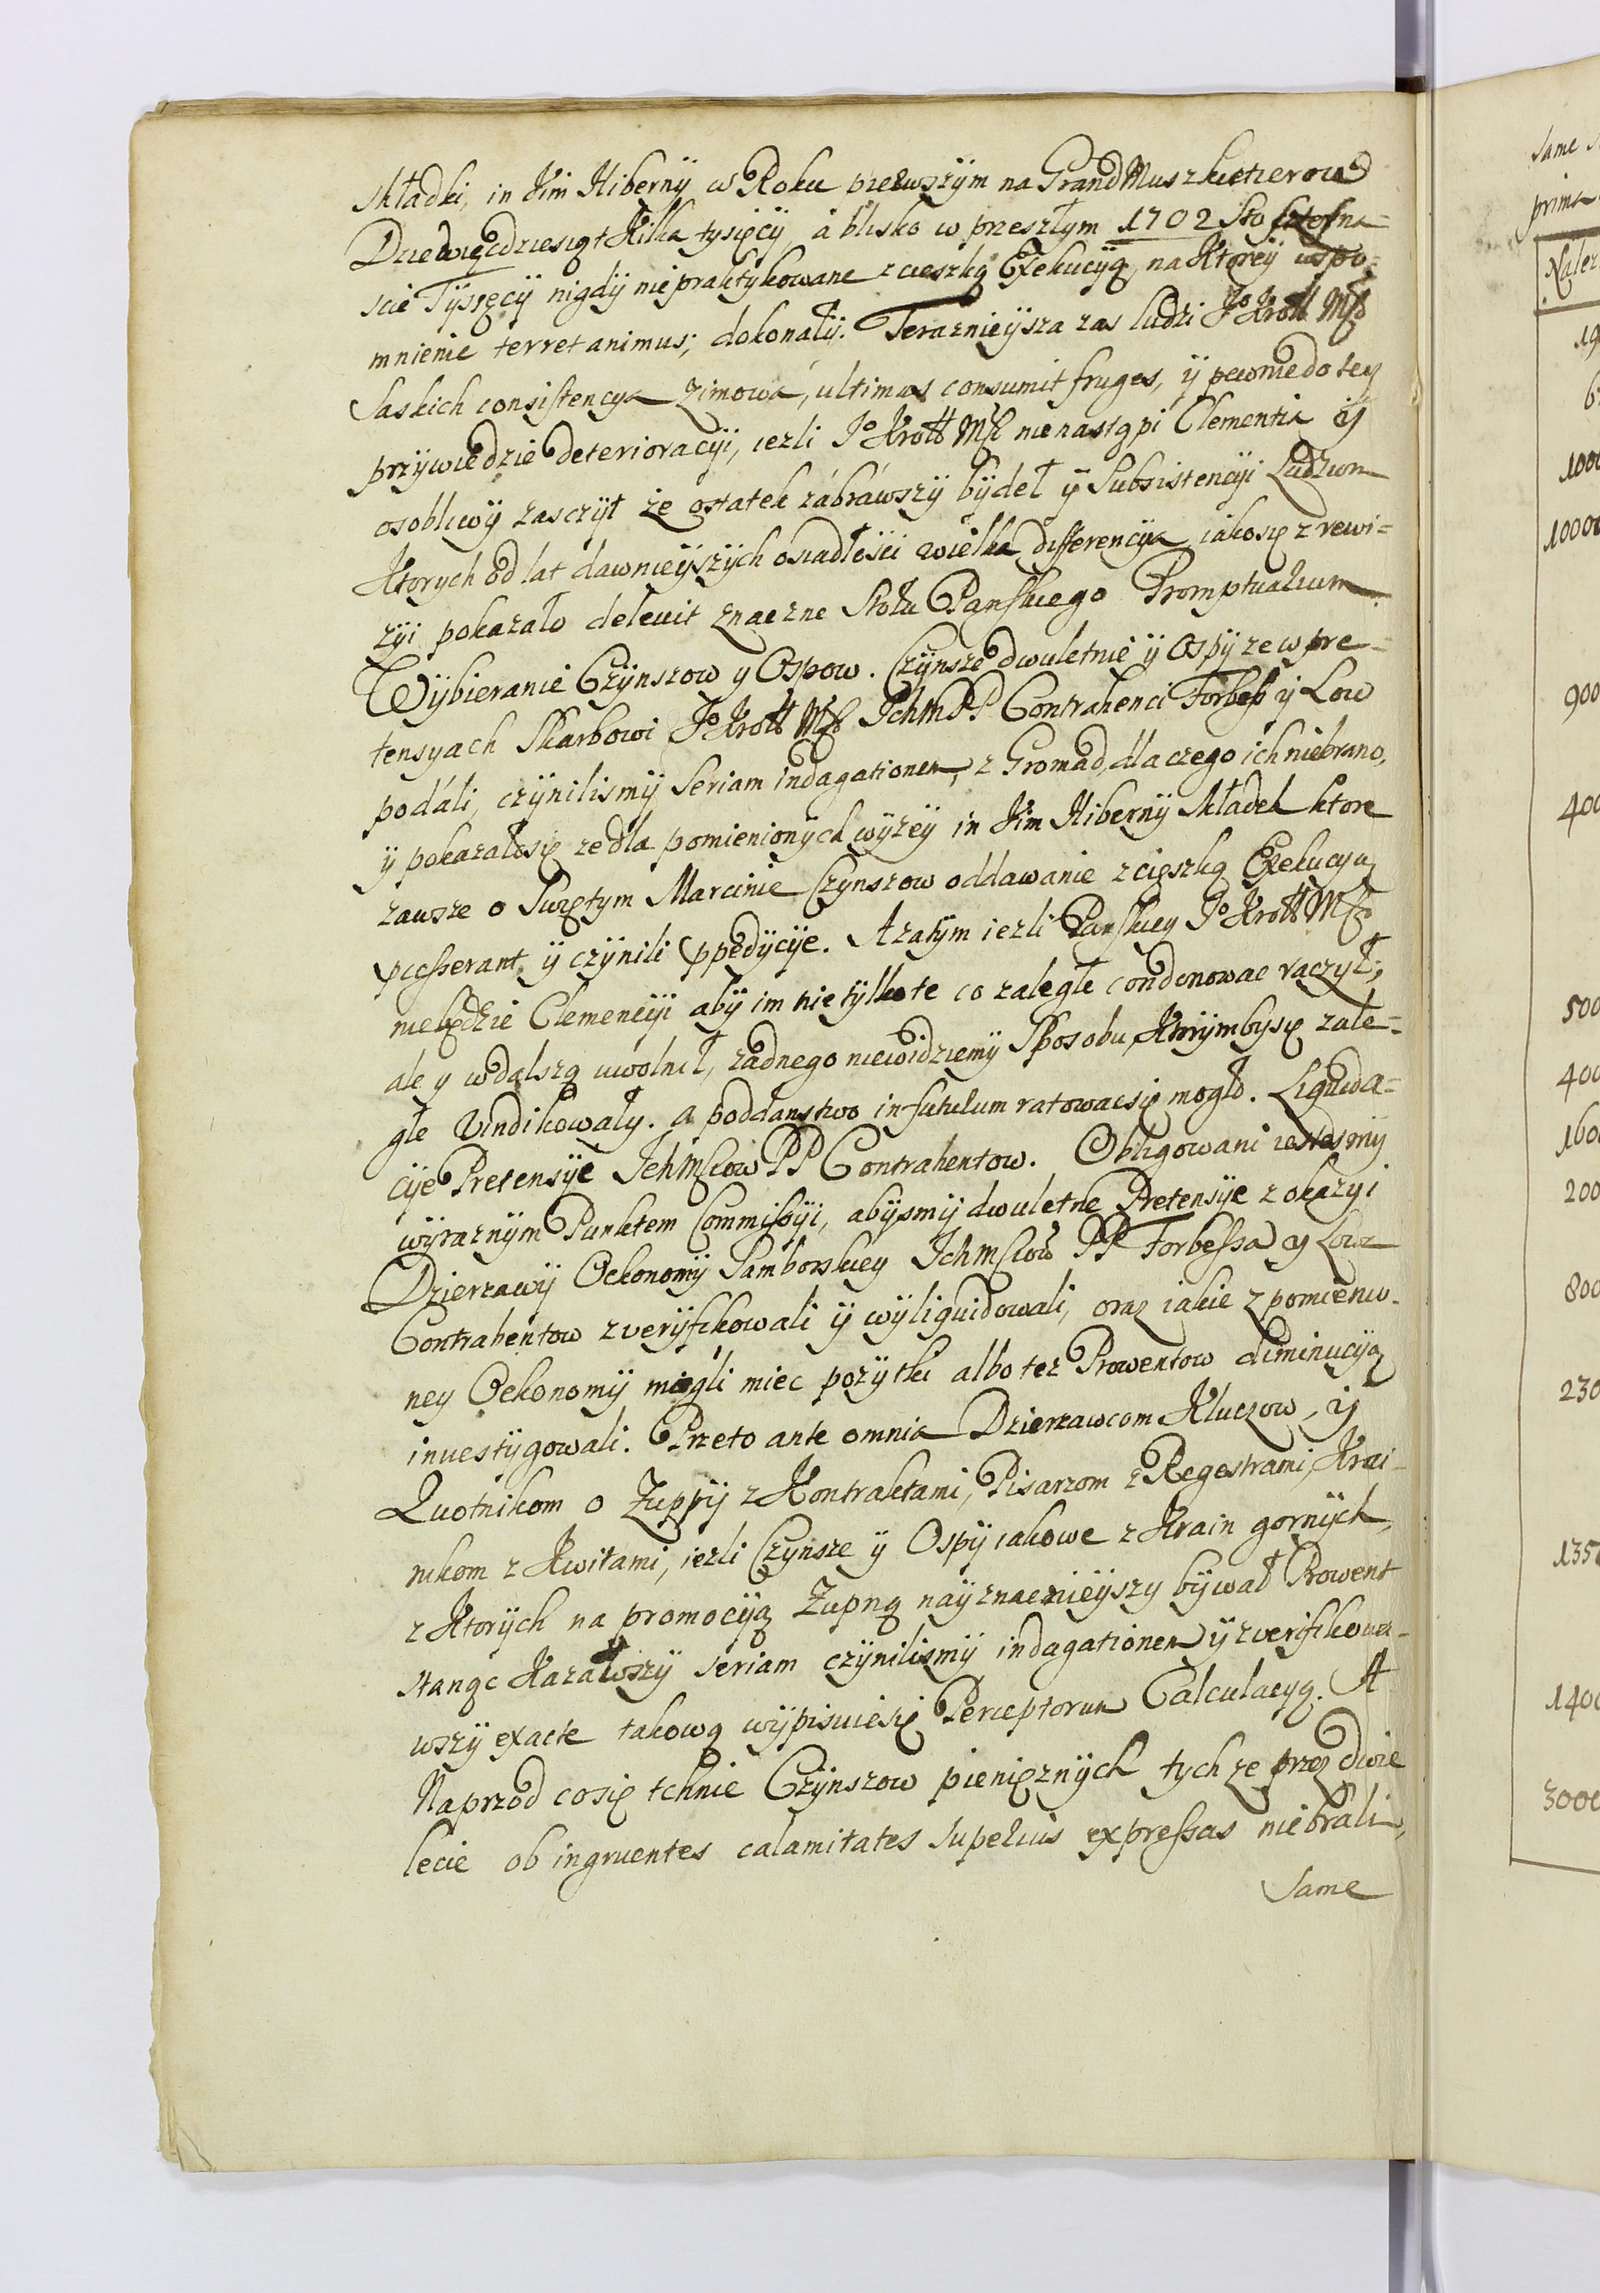 składki, in vim Hiberny w Roku pierwszym na Grand Muszkietierow
Dziewięcdziesiąt kilka tysięcy, a blisko w przeszłym 1702 sto
scie Tysięcy nigdy nie praktykowane z cieszką Exekucyą, na ktorey wspo=
mnienie terret animus; dokonały. Teraznieysza zas ludzi Jo Kroll Msci
Saskich consistencya zimowa, ultimas consumit fruges, y pewnie do tey
przywiedzie deterioracyi, iezli Jo Kroll Msci nie nastąpi Clementia y
osobliwy zasczyt ze ostatek zabrawszy bydeł y Subsistencyi Ludziom
Ktorych od lat dawnieyszych osiadłości wielka differencya iako się z rewi=
zyi pokazało delevit znaczne Stołu Panskiego Promptuarium.
Wybieranie Czynszow y Ospow. Czynsze dwuletnie y Ospy ze w pre=
tensyach Skarbowi Jo Kroll Msci Ichm PP Contrahenci Forbess y Low
podali, czynilismy seriam indagationem, z Gromad, dla czego ich nie brano,
y pokazało się ze dla pomienionych wyzey in vim Hiberny składek ktore
zawsze o Swiętym Marcinie Czynszow oddawanie z cięszką Exekucyą
pcesserant y czynili ppedycye. A zatym iezli Panskiey Jo Kroll Msci
nie będzie Clemencyi aby im nie tylko te co zaległe condonowac raczył;
ale y w dalszą uwolnił, zadnego niewidziemy Sposobu, Ktorymby się zale=
głe vindikowały. a poddanstwo in futurum ratowac się mogło. Liquida=
cye Pretensye Ichmsciow PP Contrahentow. Obligowani iestesmy
wyraznym Punktem Commissyi, abysmy dwuletne Pretensye z okazyi
Dzierzawy Oekonomy Samborskiey Ichmsciow PP Forbessa y Low
Contrahentow zveryfikowali y wyliquidowali, oraz iakie z pomienio-
ney Oekonomy mogli miec pozytki albo tez Prowentow diminucyą
inuestygowali. Przeto ante omnia Dzierzawcom Kluczow, y
Quotnikom o Zuppy z Kontraktami, Pisarzom z Regestrami, Krai-
nikom z Kwitami, iezli Czynsze y Ospy iakowe z Krain gornych,
z Ktorych na promocyą Zupną nayznacznieyszy bywał Prowent
stanąc Kazawszy seriam czynilismy indagationem y zverifikowa-
wszy exacte takową wypisuie się Perceptorum Calculacyą. A
Naprzod co się tchnie Czynszow pieniężnych tych ze przez dwie
lecie ob ingruentes calamitates superius expressas nie brali,
Same
same
prima
Należ
19
6
1000
10000
900
400
500
400
160
200
800
230
135
1400
3000